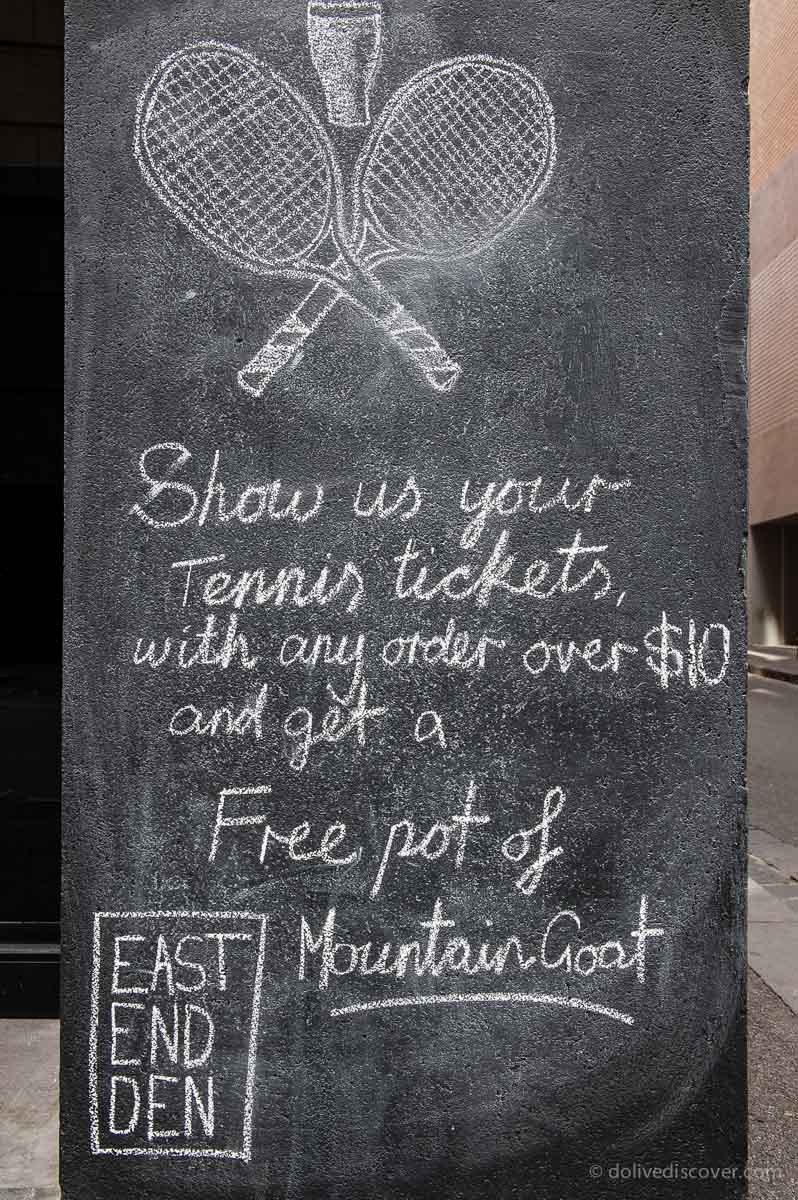 Show us your
Tennis tickets,
with any order over $10
and get a
Free pot of
Mountain Goat
EAST
END
DEN
© dolivediscover.com